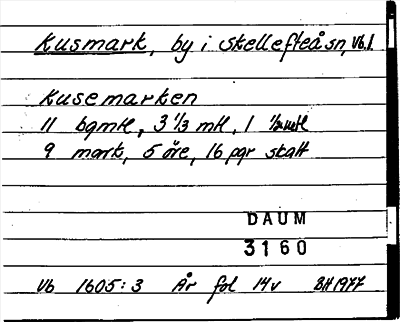 Kusmark, by i Skellefteå sn, Vb. l.
Kusemarken
11 bgmtl, 3 1/3 mtl, 1 1/2 mtl
9 mark, 5 öre, 16 pgr skatt
DAUM
3160
Vb 1605:3 År fol 14v BH 1977